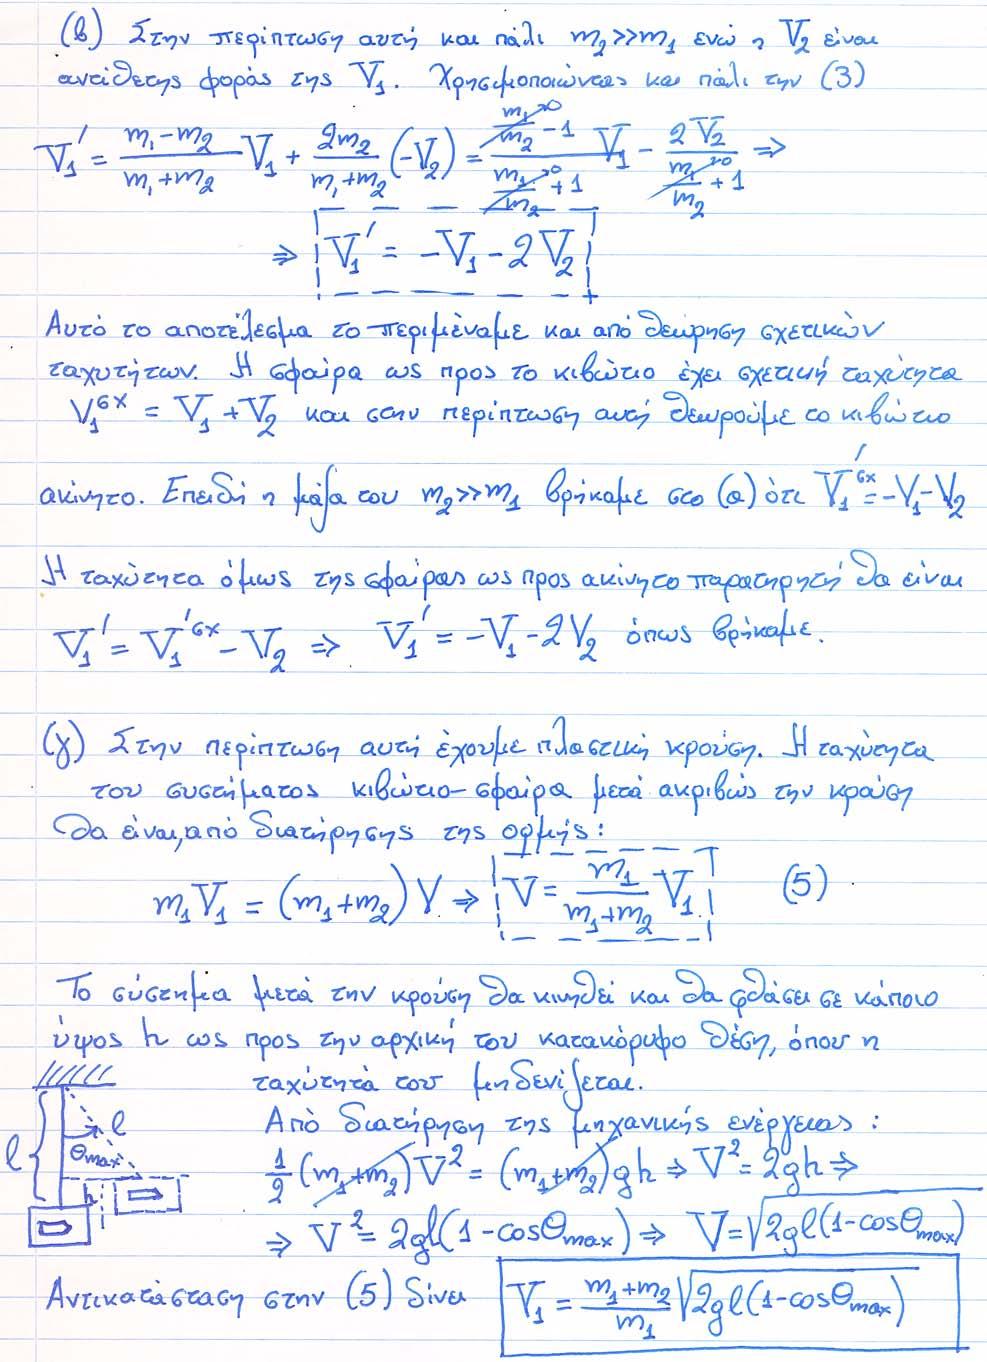 (β) Στην περίπτωση αυτή και πάλι m₂>>m₁ ενώ η V₂ είναι
αντίθετης φοράς της V₁. Χρησιμοποιώντας και πάλι την (3)
V₁' = (m₁-m₂)/(m₁+m₂) V₁ + 2m₂/(m₁+m₂) (-V₂) = (m₁/m₂→0 - 1)/(m₁/m₂→0 + 1) V₁ - 2V₂/(m₁/m₂→0 + 1) ⇒
⇒ V₁' = -V₁ - 2V₂
Αυτό το αποτέλεσμα το περιμέναμε και από θεώρηση σχετικών
ταχυτήτων. Η σφαίρα ως προς το κιβώτιο έχει σχετική ταχύτητα
V₁^σχ = V₁ + V₂ και στην περίπτωση αυτή θεωρούμε το κιβώτιο
ακίνητο. Επειδή η μάζα του m₂>>m₁ βρήκαμε στο (α) ότι V₁'^σχ = -V₁-V₂
Η ταχύτητα όμως της σφαίρας ως προς ακίνητο παρατηρητή θα είναι
V₁' = V₁'^σχ - V₂ ⇒ V₁' = -V₁ - 2V₂ όπως βρήκαμε.
(γ) Στην περίπτωση αυτή έχουμε πλαστική κρούση. Η ταχύτητα
του συστήματος κιβώτιο-σφαίρα μετά ακριβώς την κρούση
θα είναι, από διατήρησης της ορμής:
m₁V₁ = (m₁+m₂)V ⇒ V = m₁/(m₁+m₂) V₁ (5)
Το σύστημα μετά την κρούση θα κινηθεί και θα φθάσει σε κάποιο
ύψος h ως προς την αρχική του κατακόρυφο θέση, όπου η
ταχύτητά του μηδενίζεται.
Από διατήρηση της μηχανικής ενέργειας:
l l θmax h
1/2 (m₁+m₂)V² = (m₁+m₂)gh ⇒ V² = 2gh ⇒
⇒ V² = 2gl(1-cosθmax) ⇒ V = √(2gl(1-cosθmax))
Αντικατάσταση στην (5) δίνει V₁ = (m₁+m₂)/m₁ √(2gl(1-cosθmax))